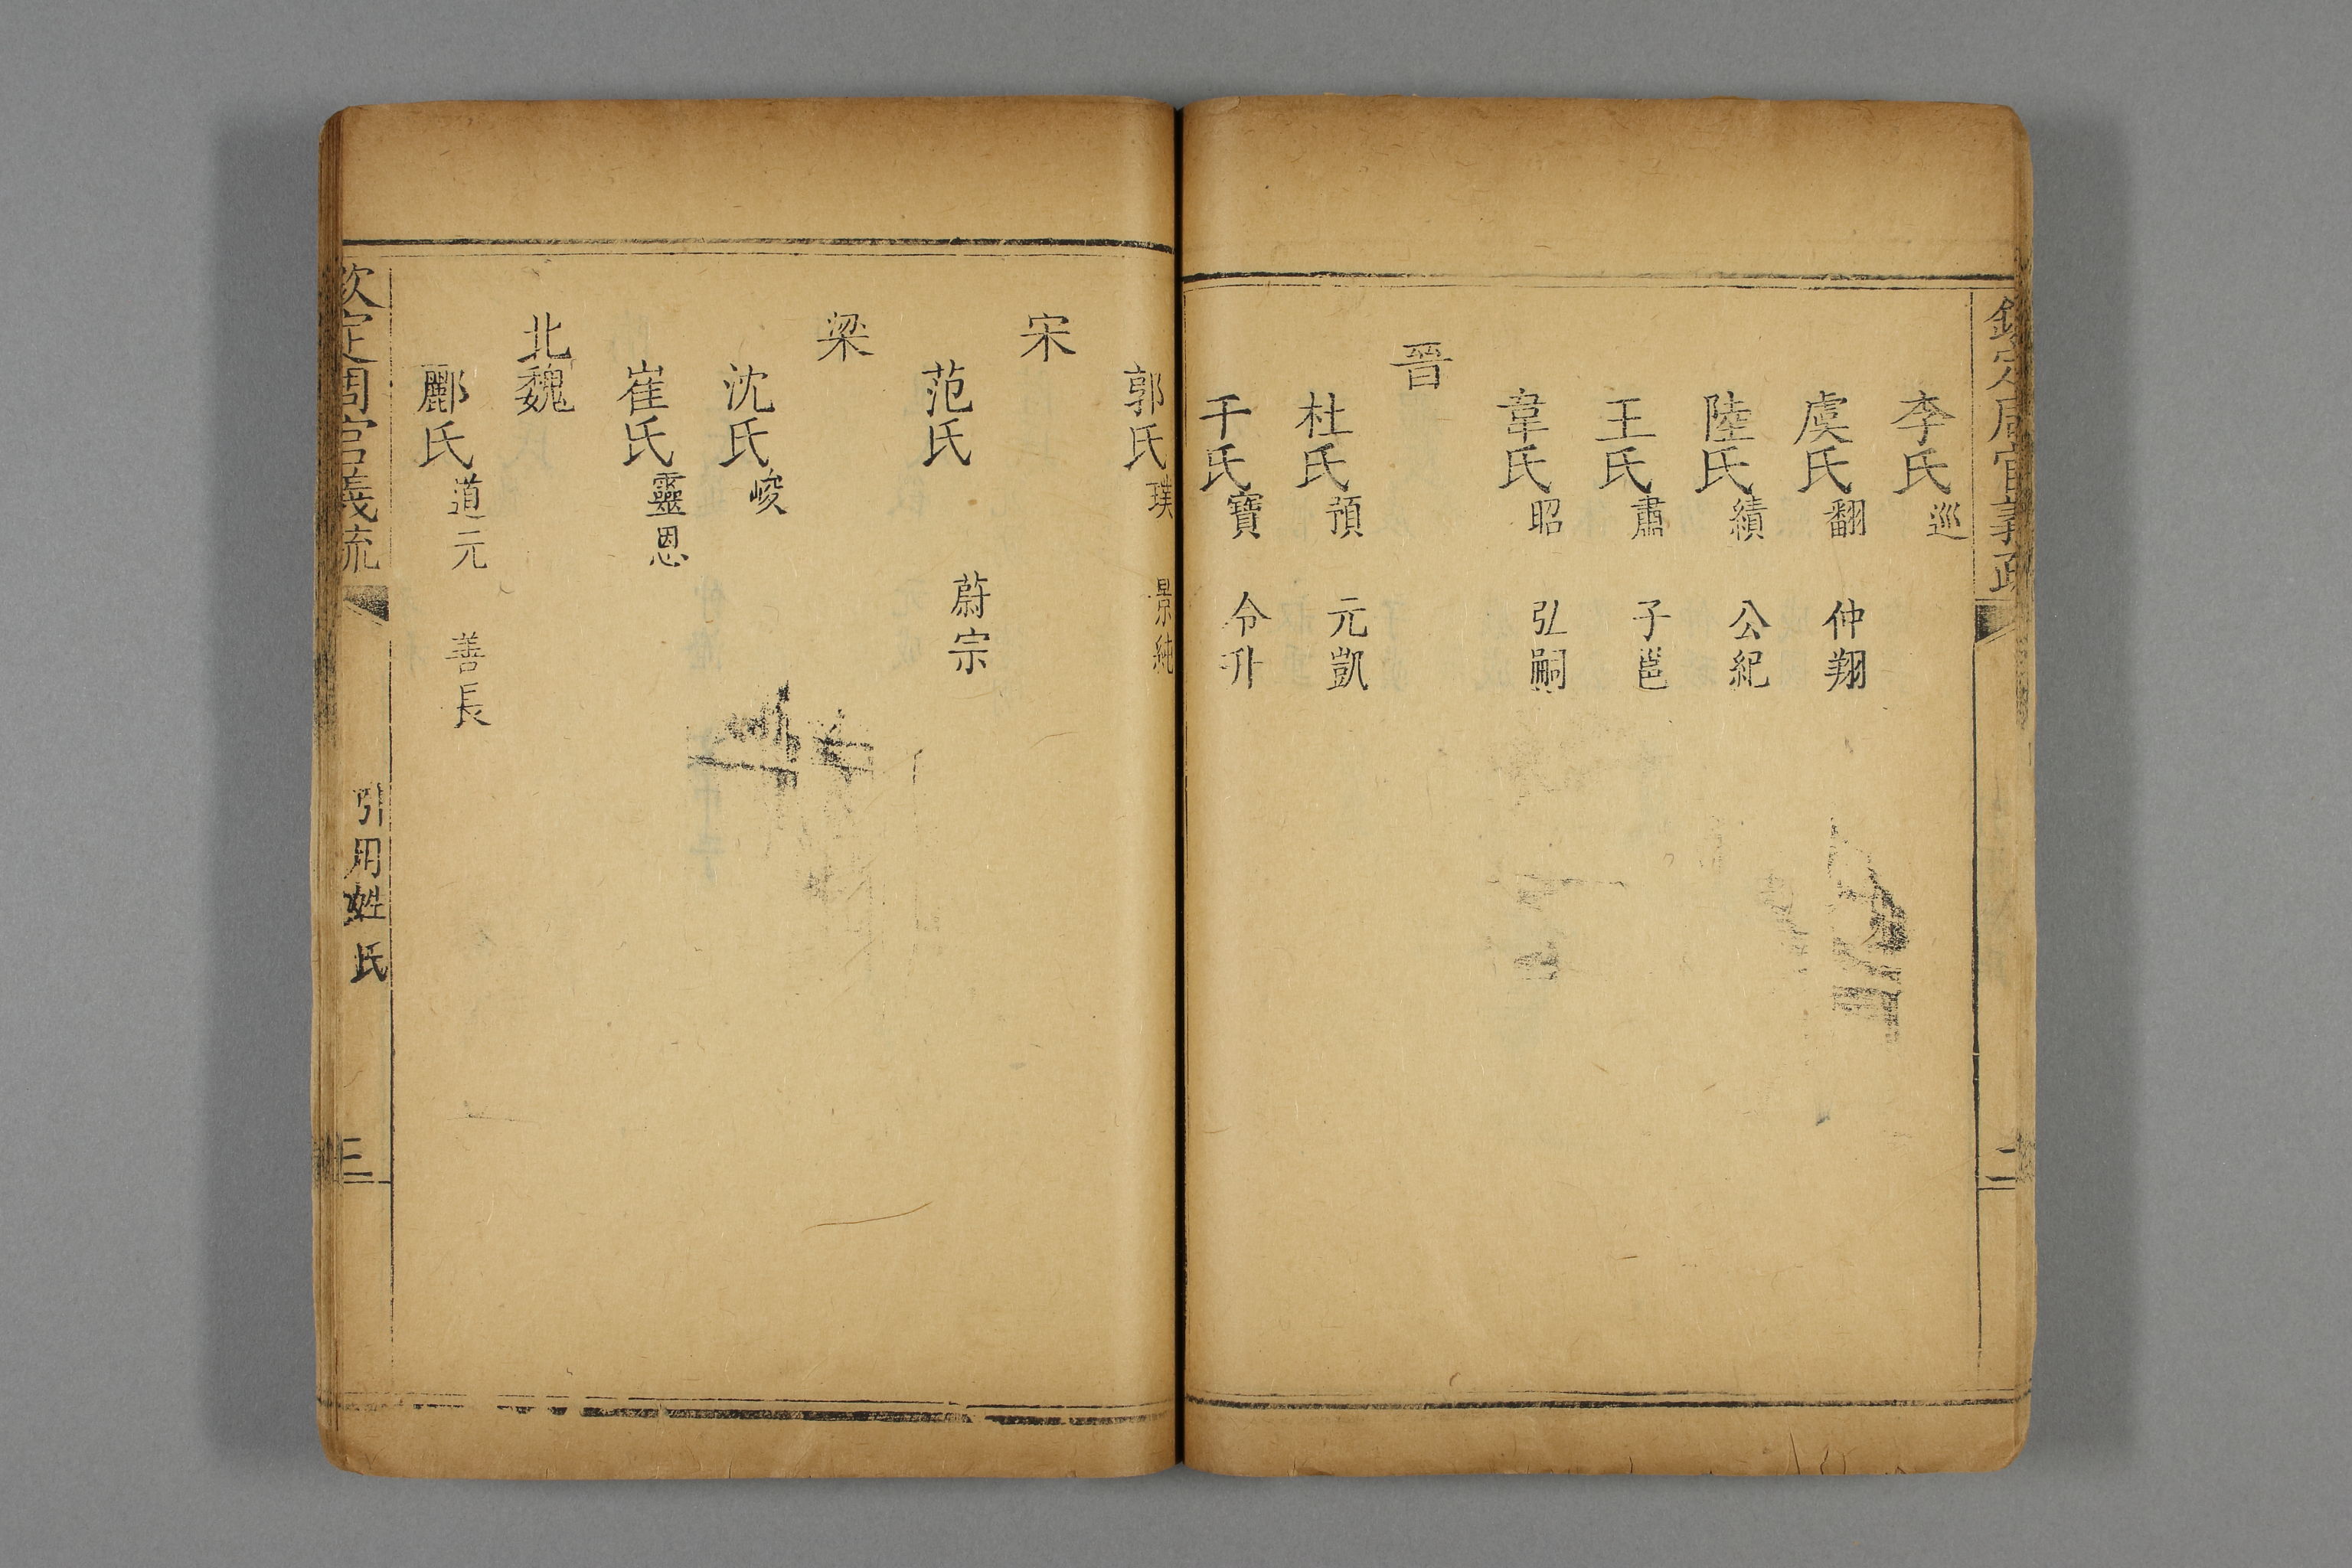 欽定周官義疏
二
李氏巡
虞氏翻 仲翔
陸氏績 公紀
王氏肅 子邕
韋氏昭 弘嗣
晉
杜氏預 元凱
干氏寶 令升
郭氏璞 景純
宋
范氏 蔚宗
梁
沈氏峻
崔氏靈恩
北魏
酈氏道元 善長
欽定周官義疏
引用姓氏
三